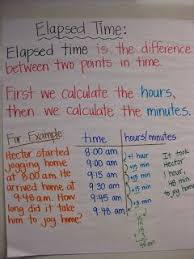 Elapsed Time:
Elapsed time is the difference
between two points in time.
First we calculate the hours,
then we calculate the minutes.
For Example
Hector started
jogging home
at 8:00 am. He
arrived home at
9:48 am. How
long did it take
him to joy home?
time
8:00 am
9:00 am
9:15 am
9:30 am
9:45 am
9:48 am
hours/minutes
+1 hour
+15 min
+15 min
+15 min
+3 min
It took
Hector
1 hour,
48 min
to joy home